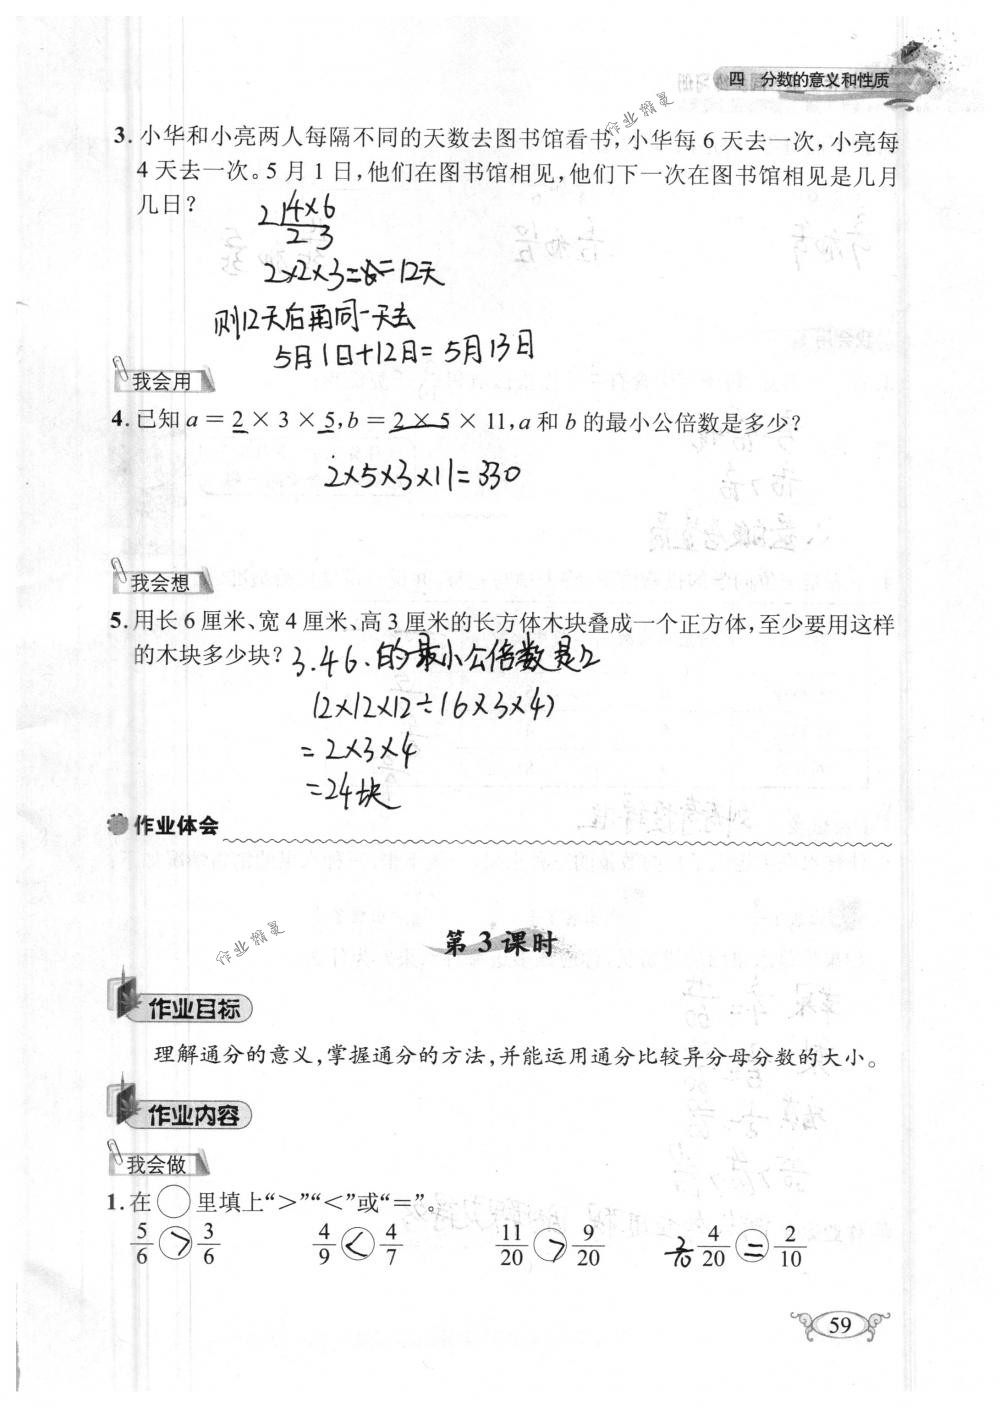 四 分数的意义和性质
作业精灵
3. 小华和小亮两人每隔不同的天数去图书馆看书,小华每 6 天去一次,小亮每
4 天去一次。5 月 1 日,他们在图书馆相见,他们下一次在图书馆相见是几月
几日?
2 4×6
2 3
2×2×3=12天
则12天后再同一天去
5月1日+12日=5月13日
我会用
4. 已知 a = 2 × 3 × 5, b = 2 × 5 × 11, a 和 b 的最小公倍数是多少?
2×5×3×11=330
我会想
5. 用长 6 厘米、宽 4 厘米、高 3 厘米的长方体木块叠成一个正方体,至少要用这样
的木块多少块? 3.4 6.的最小公倍数是12
12×12×12÷(6×3×4)
=2×3×4
=24块
作业体会
作业精灵
第 3 课时
作业目标
理解通分的意义,掌握通分的方法,并能运用通分比较异分母分数的大小。
作业内容
我会做
1. 在○里填上“>”“<”或“=”。
5/6 > 3/6 4/9 < 4/7 11/20 > 9/20 4/20 = 2/10
59